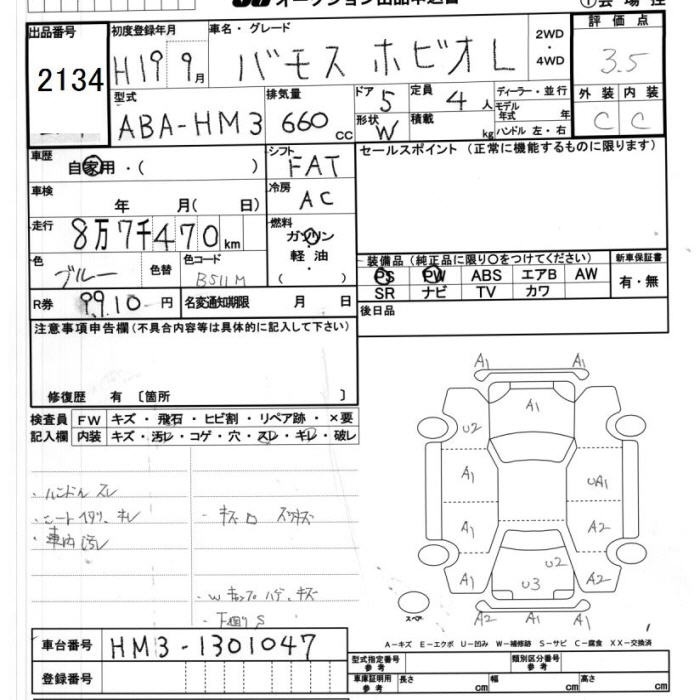 オークション出品申込書
①会場控
出品番号
2134
初度登録年月
H19 9月
車名・グレード
バモス ホビオ L
2WD
・
4WD
評価点
3.5
型式
ABA-HM3
排気量
660 cc
ドア 5
形状 W
定員 4 人
積載 kg
ディーラー・並行
モデル年式 年
ハンドル 左・右
外装 内装
C C
車歴
自家用・( )
シフト
FAT
セールスポイント (正常に機能するものに限ります)
車検
年 月( 日)
冷房
AC
走行
8万7千470km
燃料
ガソリン
軽油
・
( )
色
ブルー
色替
色コード
B511M
装備品 (純正品に限り○をつけてください)
PS PW ABS エアB AW
SR ナビ TV カワ
新車保証書
有・無
R券 9910円
名変通知期限 月 日
後日品
注意事項申告欄 (不具合内容等は具体的に記入して下さい)
修復歴 有 〔箇所 〕
検査員
記入欄
FW キズ・飛石・ヒビ割・リペア跡・×要
内装 キズ・汚レ・コゲ・穴・スレ・キレ・破レ
・ハンドル スレ
・車内汚レ
・W キャップ ハゲ、キズ
・下廻り S
A1 A1
A1
U2
A1 UA1
A1 A2
A1 U2 A2
U3
A2 A1 A1
スペア
A-キズ E-エクボ U-凹み W-補修跡 S-サビ C-腐食 XX-交換済
車台番号
HM3-1301047
登録番号
型式指定番号
参考
類別区分番号
参考
車庫証明用
参考
長さ cm 幅 cm 高さ cm